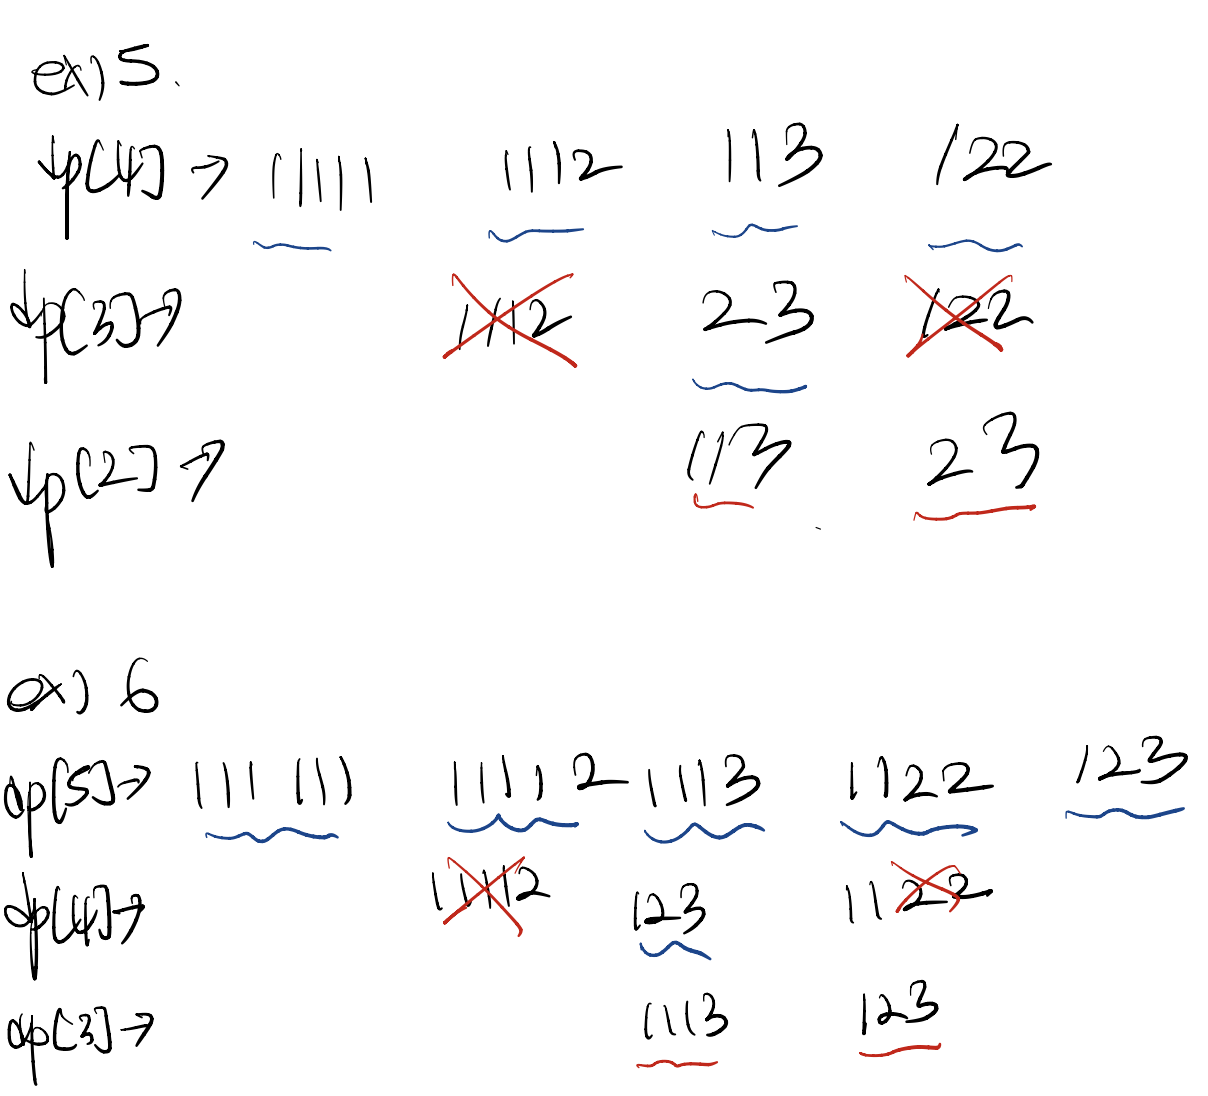 ex) 5.
dp[4] → 11111 1112 113 122
dp[3] → 1112 23 122
dp[2] → 113 23
ex) 6
dp[5] → 111 111 1111 2 1113 1122 123
dp[4] → 11112 123 1122
dp[3] → 1113 123